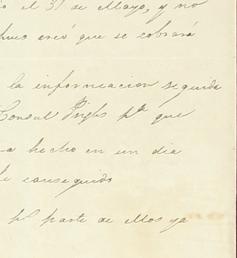 el 31 de Mayo, y no
creó que se cobrará
la informacion seguida
Consul Ingles pª que
hecho en un dia
conseguido
pr parte de ellos ya